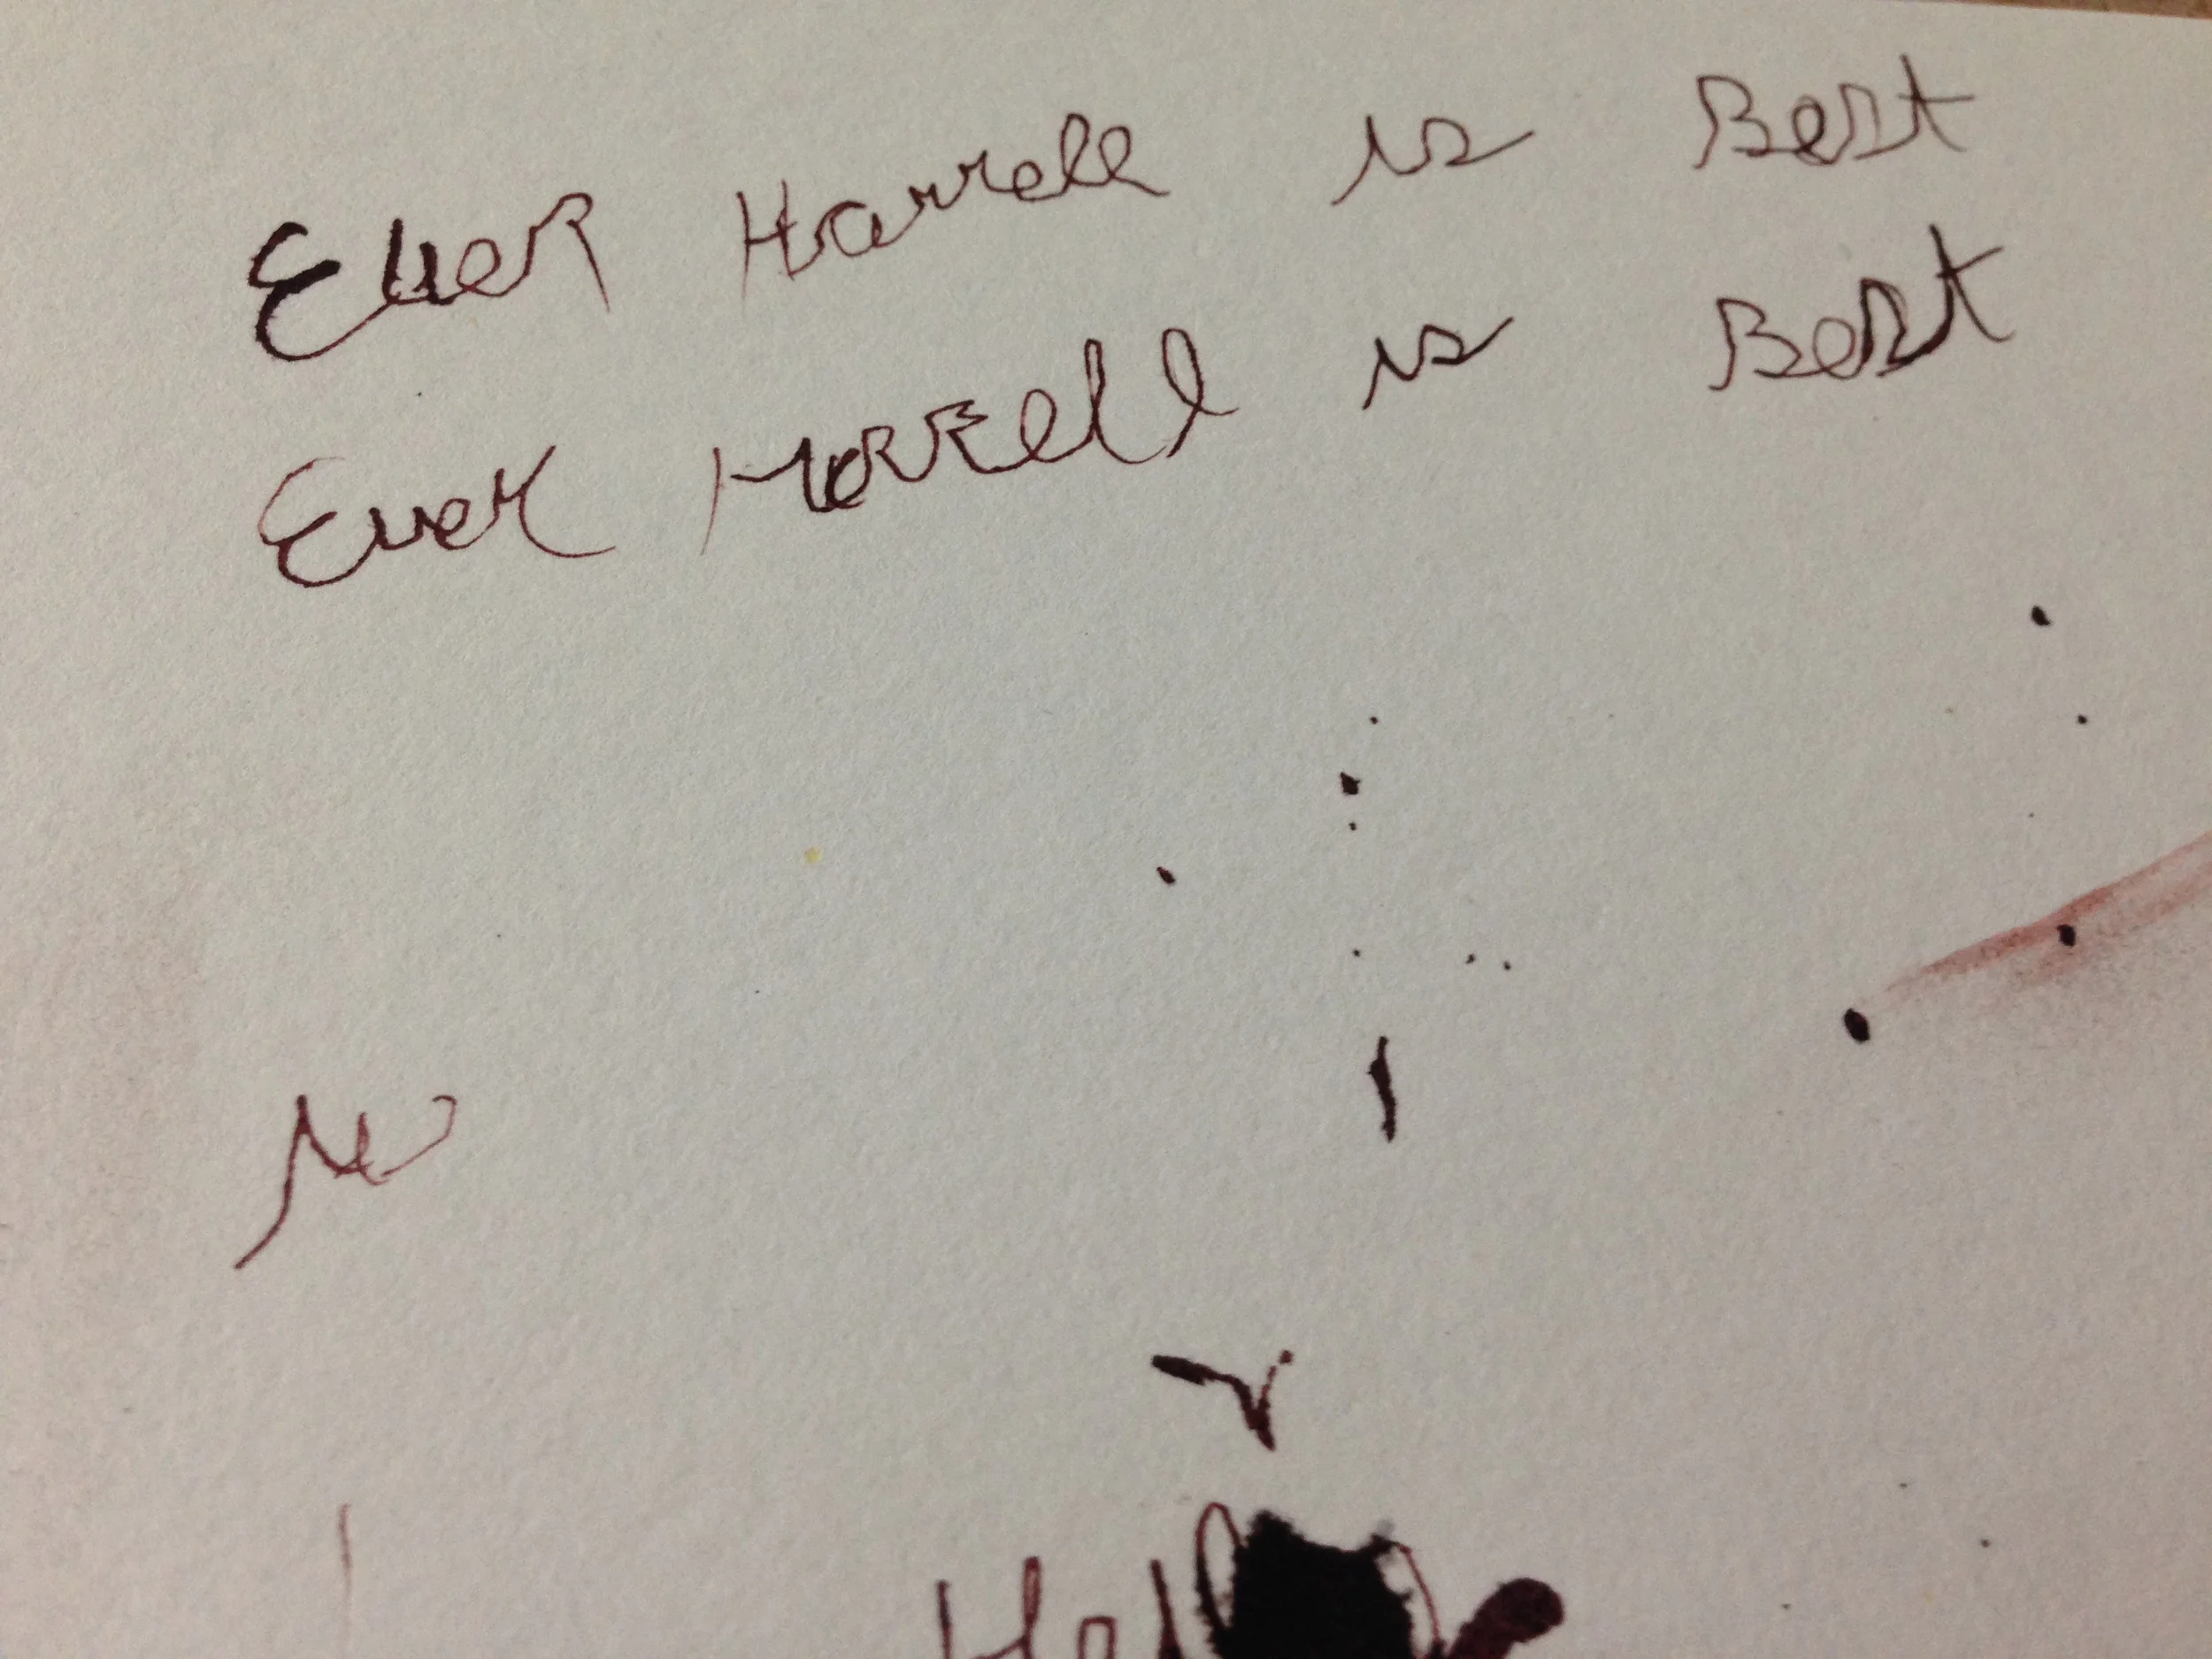 Ever Harrell is Best
Ever Harrell is Best